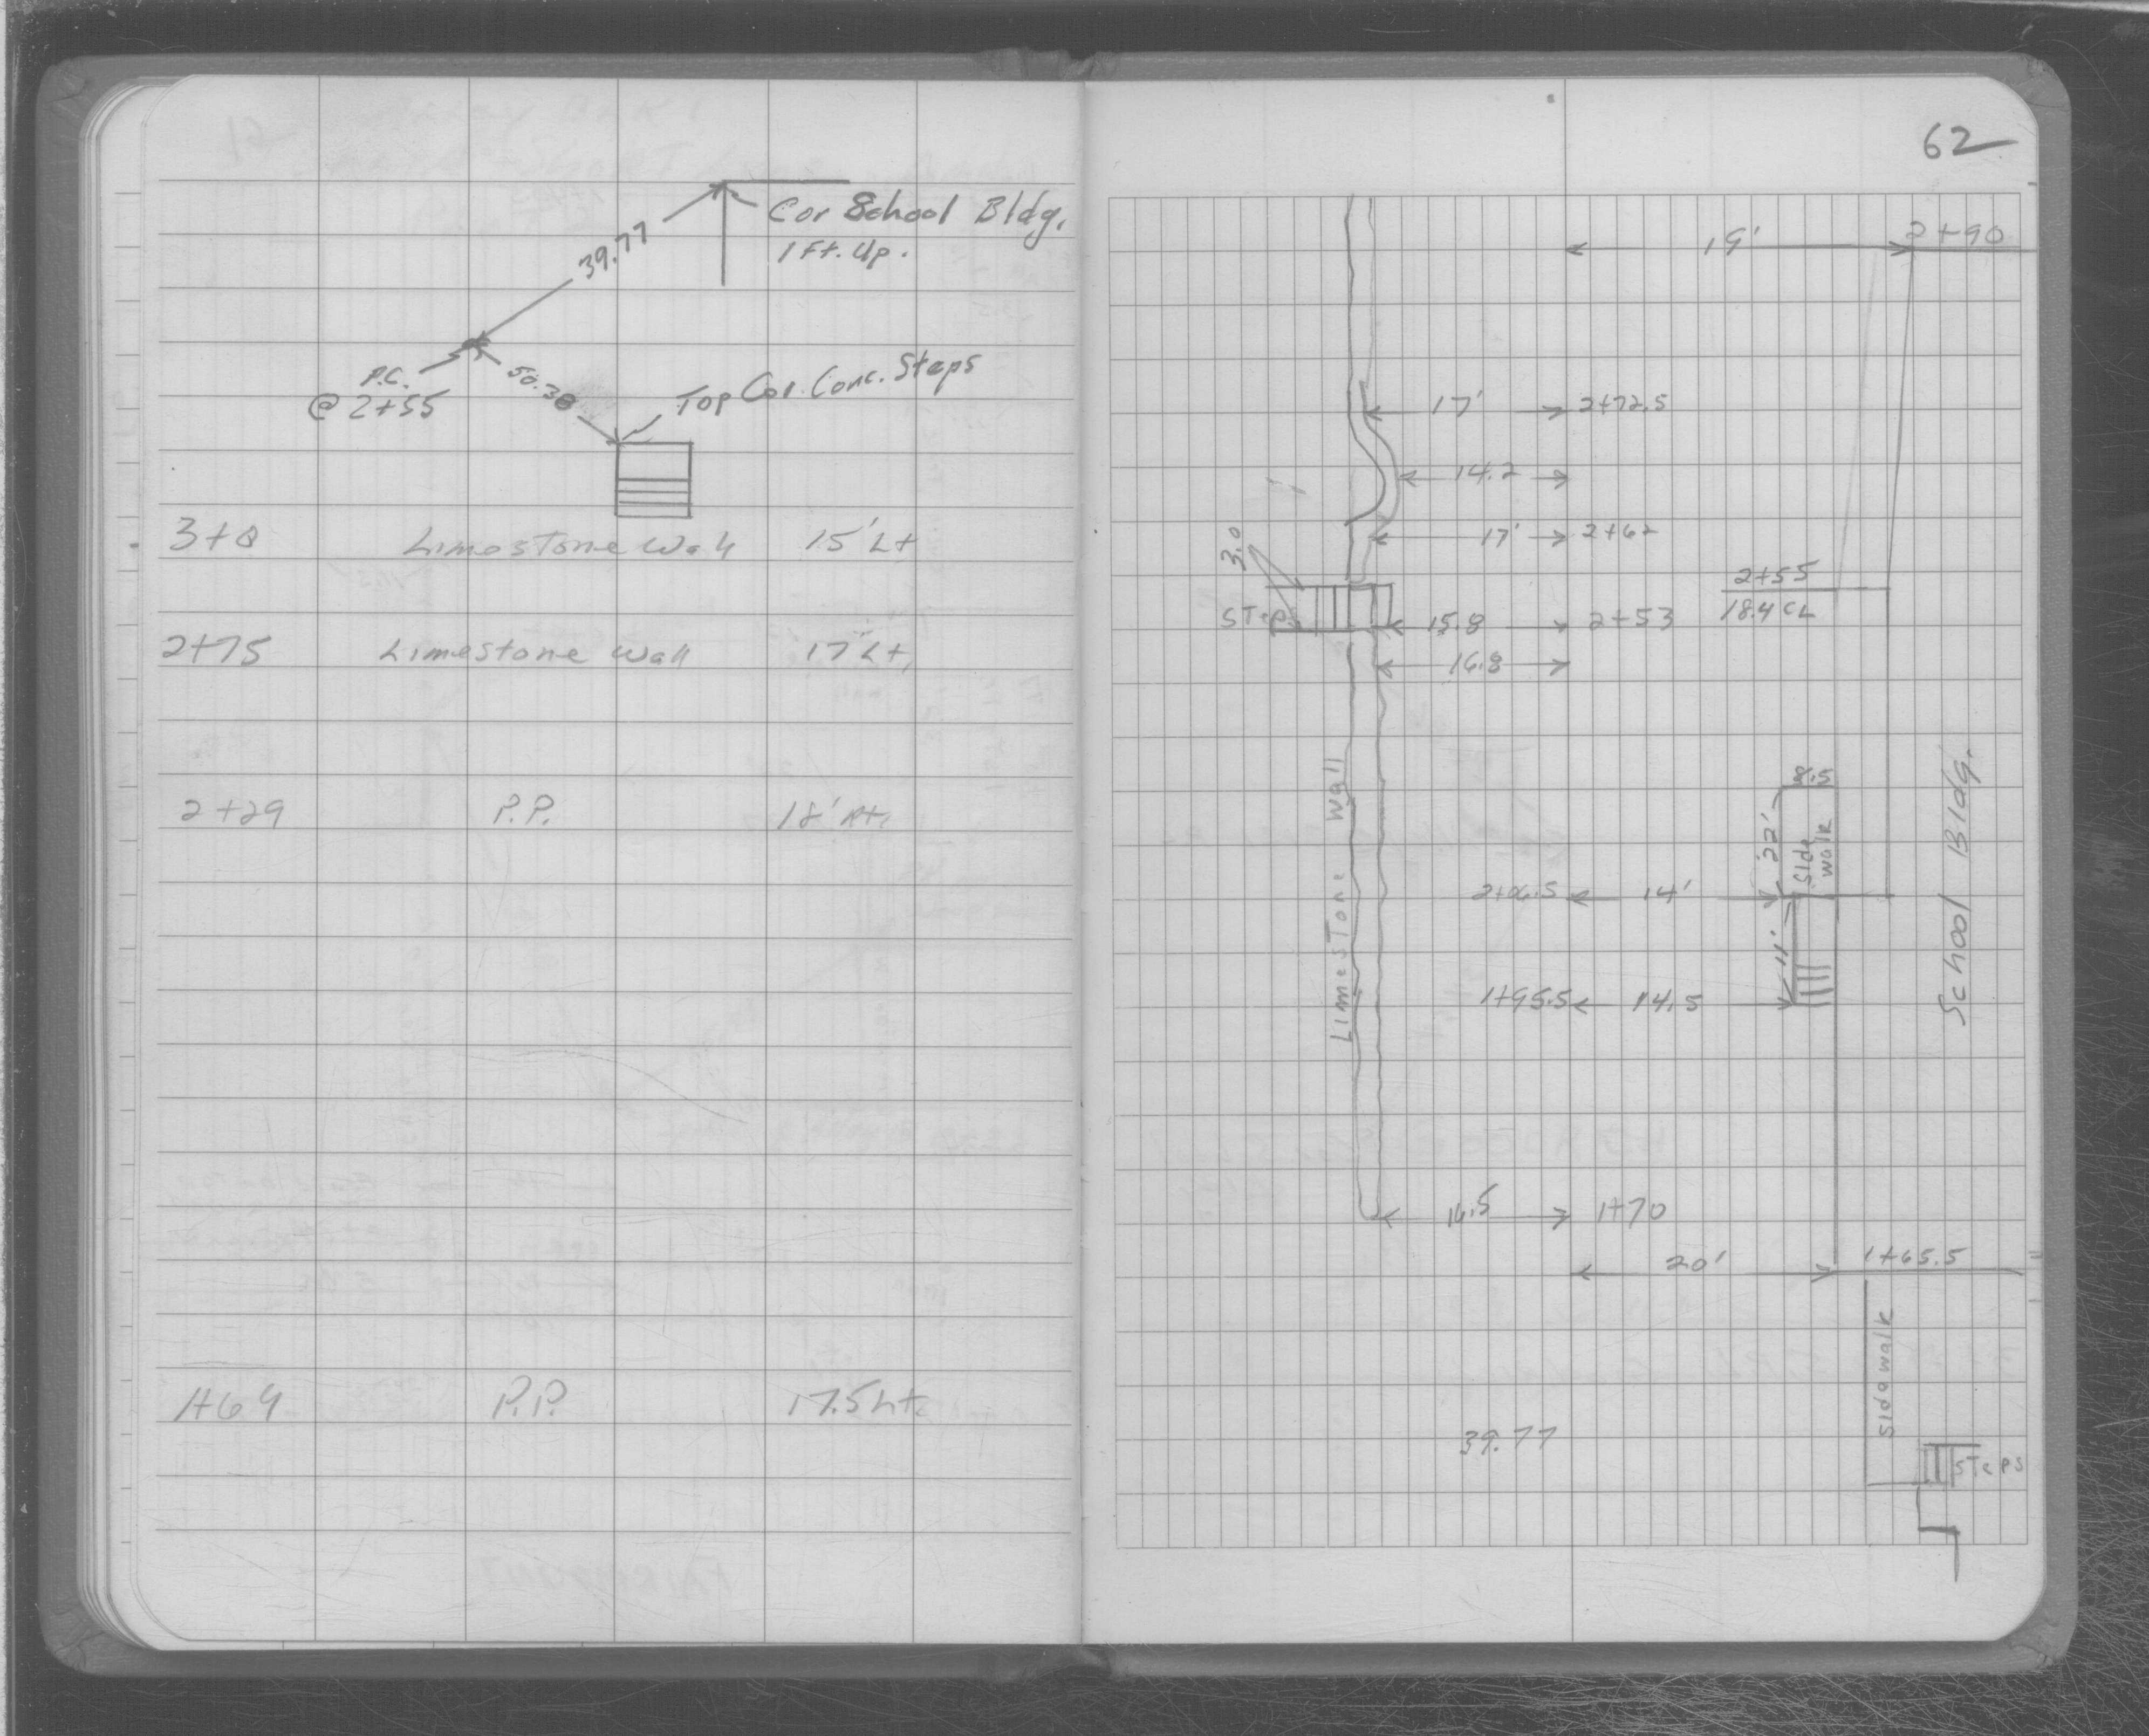 Cor School Bldg.
1 Ft. Up.
39.77
P.C.
@ 2+55
50.38
Top Cor. Conc. Steps
3+0 Limestone Wall 15' Lt
2+75 Limestone Wall 17' Lt.
2+29 P.P. 18' Rt.
1+64 P.P. 17.5 Lt.
62
19' 2+90
17' 2+72.5
14.2
17' 2+62
3.0
2+55
18.4 CL
Steps
15.8 2+53
16.8
Limestone Wall
School Bldg.
22'
Side
walk
2+06.5 14'
11'
1+95.5 14.5
1+70
20' 1+65.5
Sidewalk
39.77
Steps